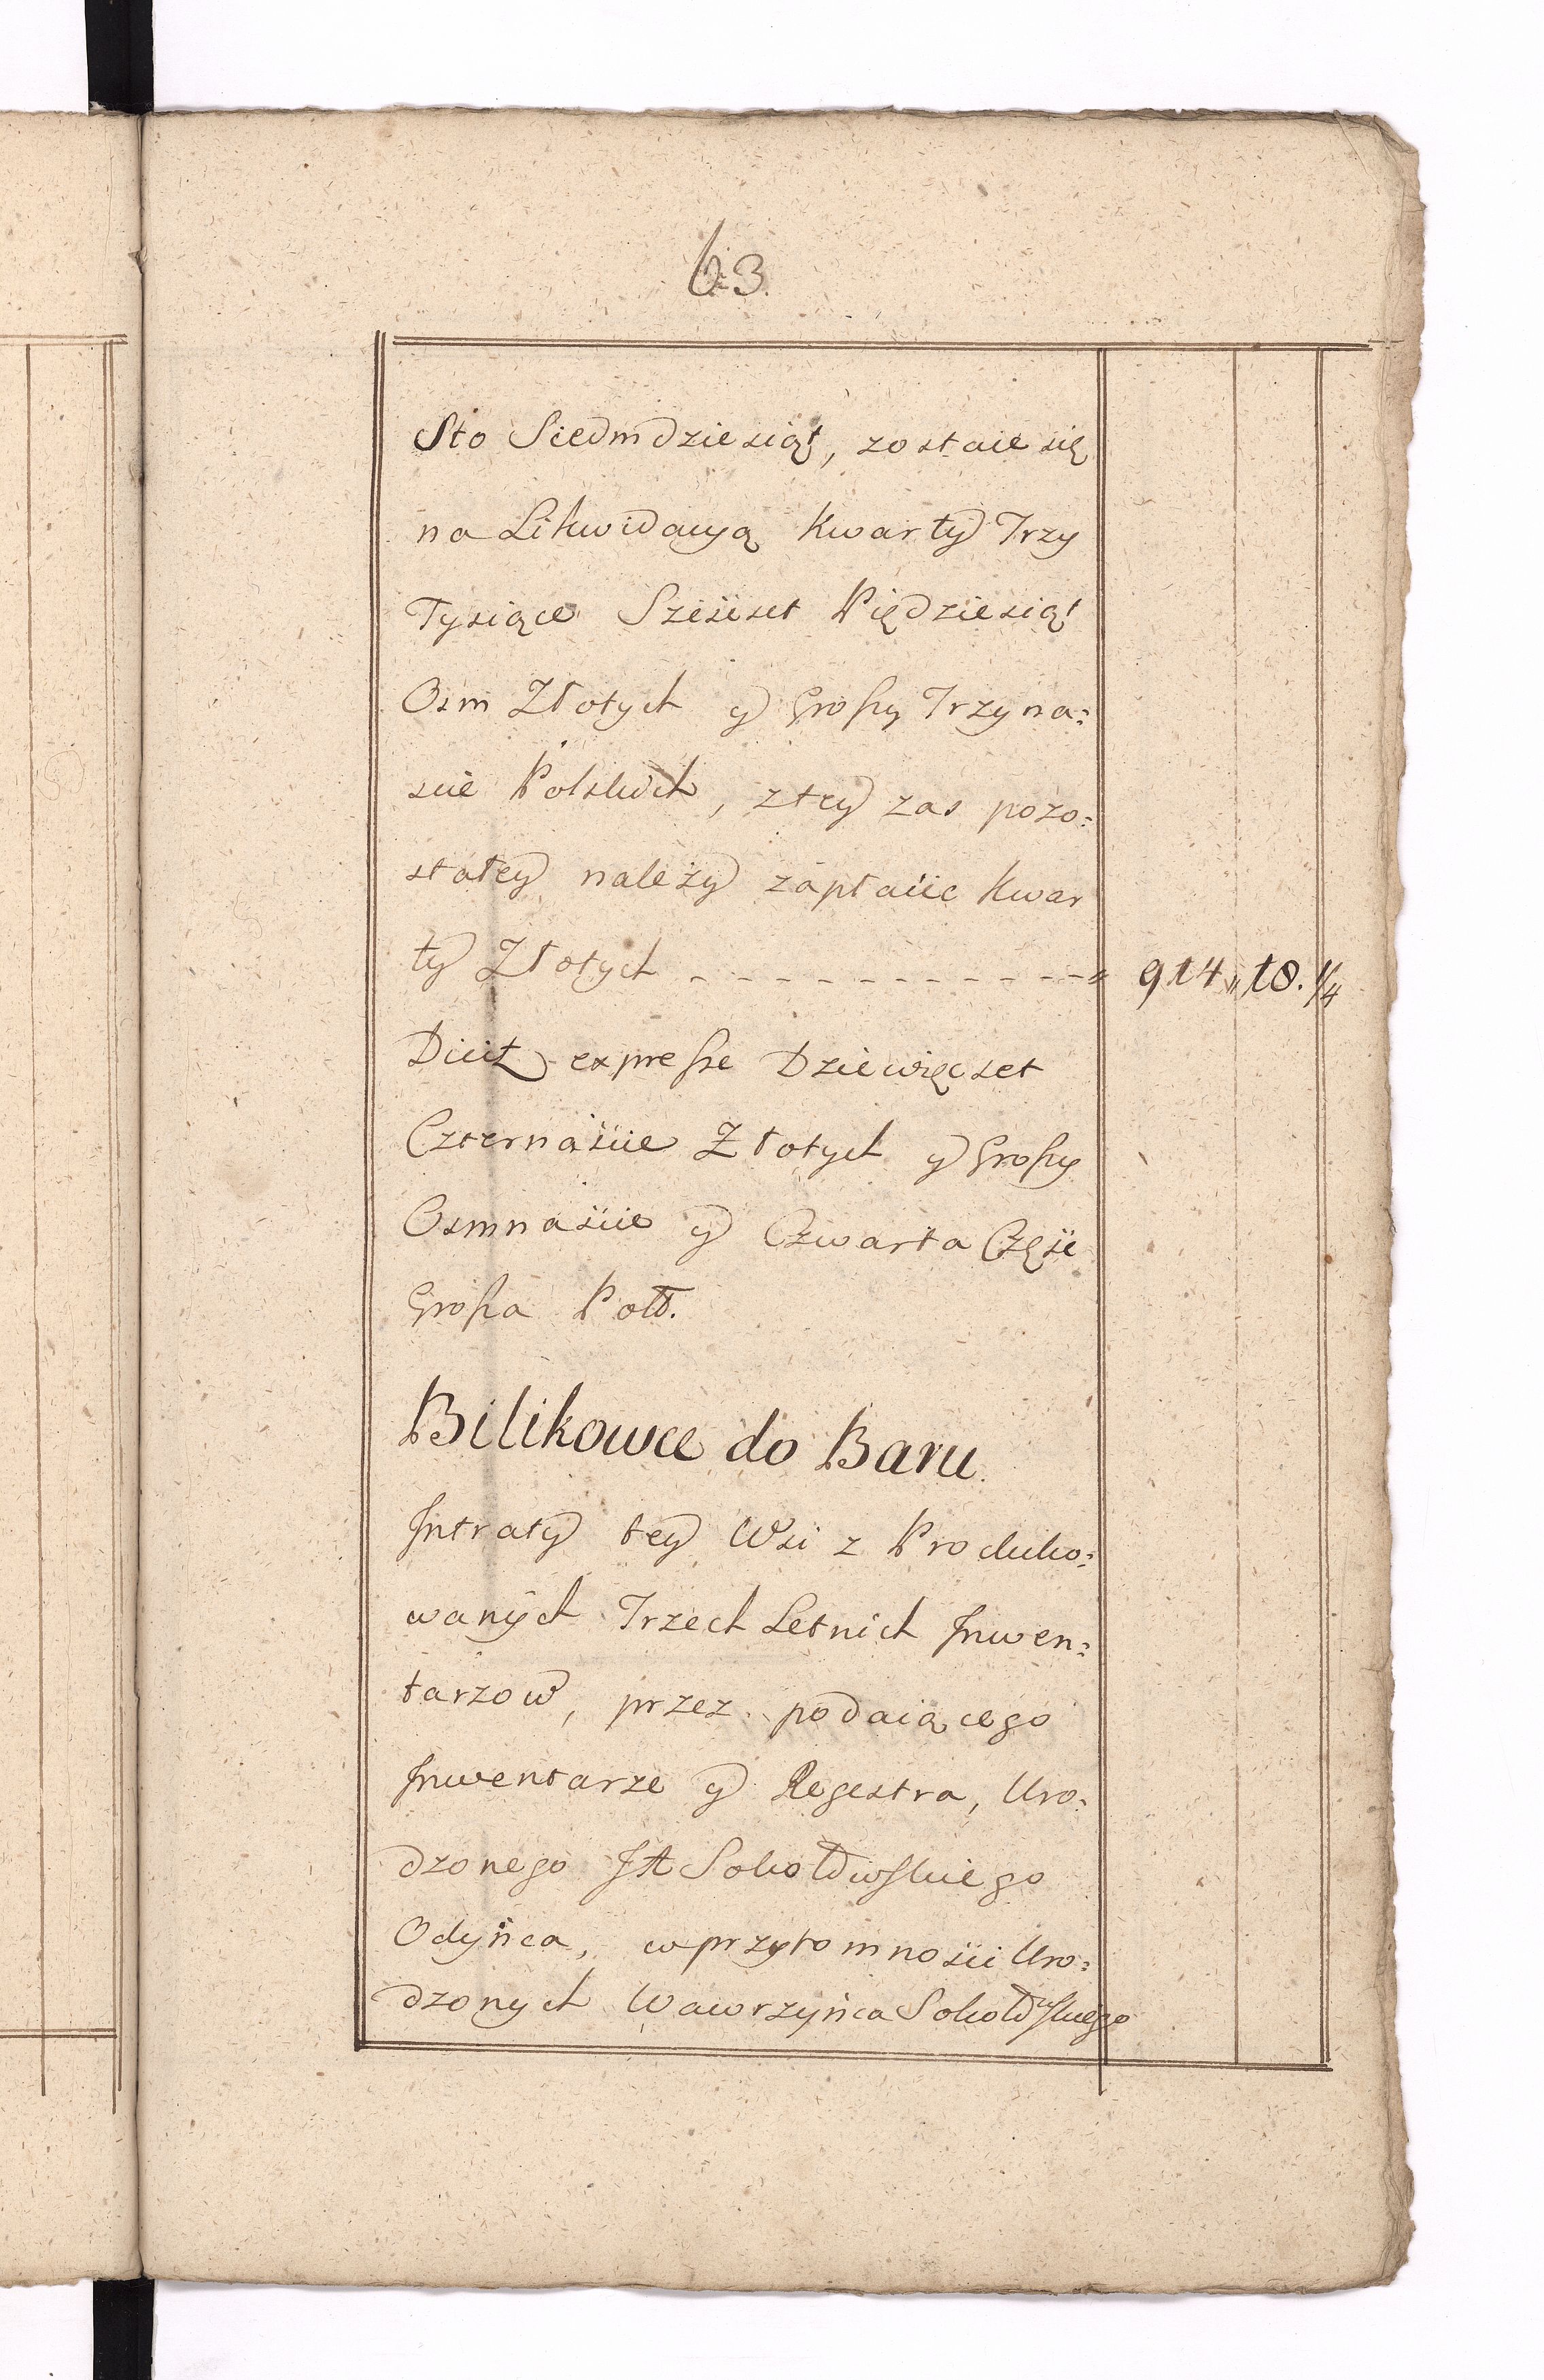 63.
Sto Siedmdziesiąt, zostaie się
na Likwidacyą Kwarty Trzy
Tysiące Sześćset Piędziesiąt
Osm Złotych y Groszy Trzyna:
scie Polskich, z tey zas pozo:
stałey należy zapłacić Kwar
ty Złotych - - - - - - - - - - - - " 914 " 18. 1/4
Dicit expresse Dziewięcset
Czternaście Złotych y Groszy
Osmnaście y Czwarta Część
Grosza Poll.
Bilikowce do Baru.
Intraty tey Wsi z Produko:
wanych Trzech Letnich Inwen:
tarzow, przez podaiącego
Inwentarze y Regestra, Uro:
dzonego Sokołowskiego
Odyńca, w przytomności Uro:
dzonych Wawrzyńca Sokołowskiego